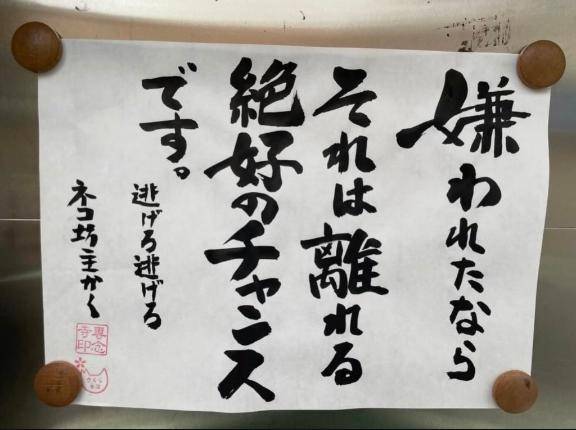 嫌われたなら
それは離れる
絶好のチャンス
です。
逃げろ逃げる
ネコ坊主かく
専念
寺印